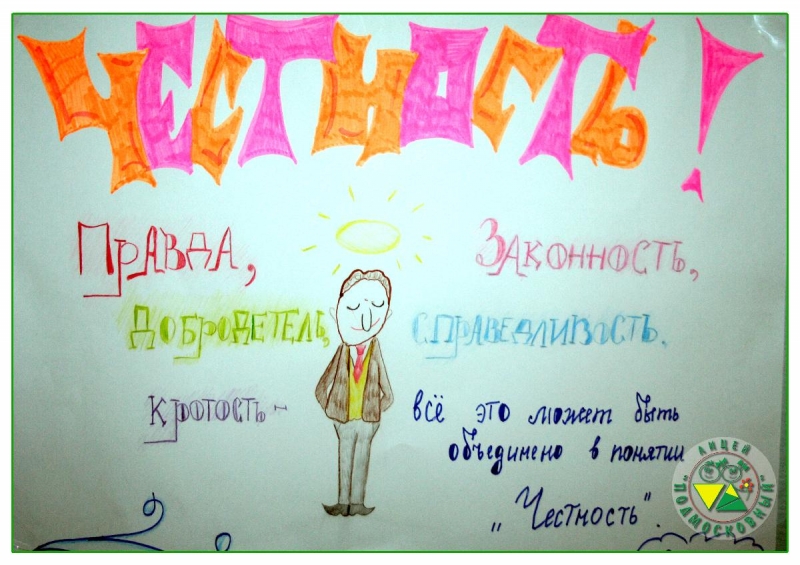 ЧЕСТНОСТЬ!
Правда,
Законность,
Добродетель,
справедливость.
Кротость -
всё это может быть
объединено в понятии
„Честность".
ЛИЦЕЙ
"ПОДМОСКОВНЫЙ"